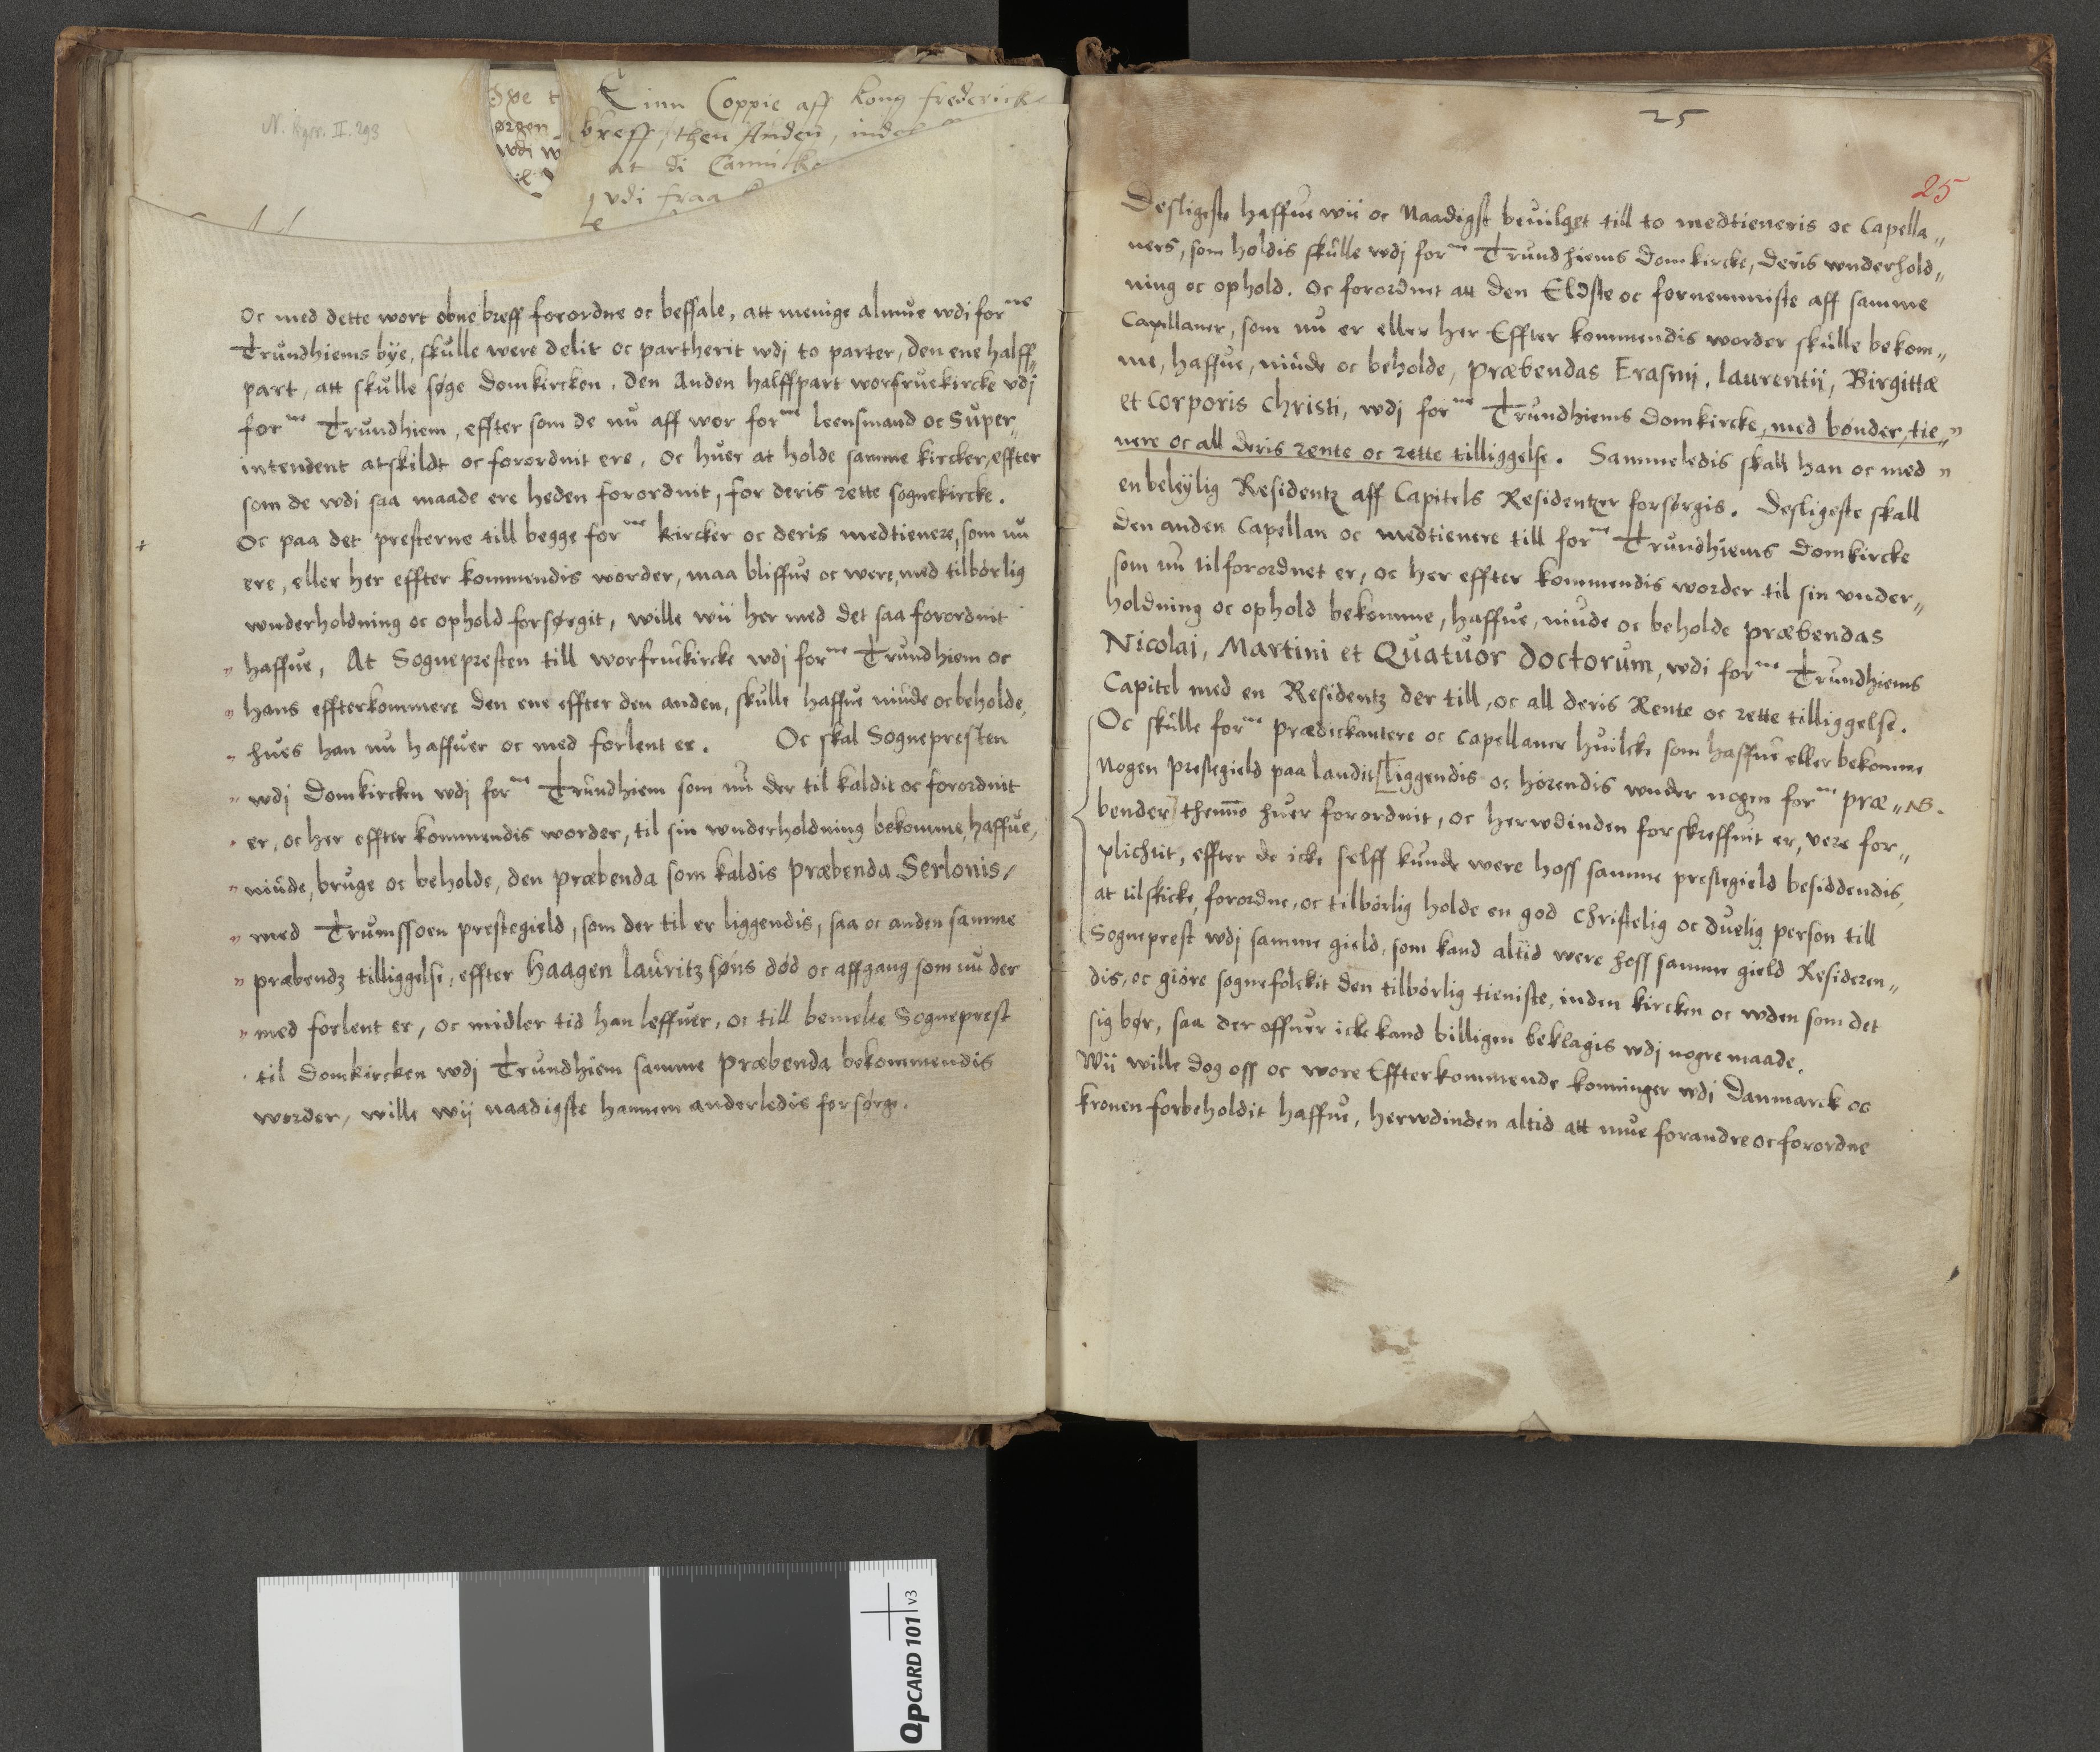 N. Rgr. II. 293
Einn Coppie aff kong Frederick
breff, then Anden,
at di Cannicke
vdi fraa
ørgen
wdi w
Oc med dette wort obne breff forordne oc beffale, att menige almue wdi for.ne
Trundhiems bye, skulle were delit oc partherit wdj to parter, den ene halff„
part, att skulle søge Domkircken, den Anden halffpart worfruekircke vdj
for.ne Trundhiem, effter som de nu aff wor for.ne leensmand oc Super„
intendent atskildt oc forordnit ere, oc huer at holde samme kircker, effter
som de wdi saa maade ere heden forordnit, for deris rette sognekircke.
Oc paa det presterne till begge for.ne kircker oc deris medtienere, som nu
ere, eller her effter kommendis worder, maa bliffue oc were, med tilbørlig
wnderholdning oc ophold forsørgit, wille wii her med det saa forordnit
„ haffue, At Sognepresten till worfruekircke wdj for.ne Trundhiem oc
„ hans effterkommere den ene effter den anden, skulle haffue niude oc beholde,
„ hues han nu haffuer oc med forlent er. Oc skal Sognepresten
„ wdj Domkircken wdj for.ne Trundhiem som nu der til kaldit oc forordnit
„ er, oc her effter kommendis worder, til sin wnderholdning bekomme, haffue,
„ niude, bruge oc beholde, den præbenda som kaldis præbenda Serlonis,
„ med Trumssoen prestegield, som der til er liggendis, saa oc anden samme
„ præbendz tilliggelse, effter Haagen lauritz søns død oc affgang som nu der
„ med forlent er, oc midler tid han leffuer, oc till bemelte Sogneprest
til Domkircken wdj Trundhiem samme præbenda bekommendis
worder, wille wij naadigste hannem anderledis forsørge.
25
25
Desligeste haffue wii oc Naadigst beuilget till to medtieneris oc Capella„
ners, som holdis skulle wdj for.ne Trundhiems Domkircke, deris wnderhold„
ning oc ophold. Oc forordnit att den Eldste oc fornemmiste aff samme
Capellaner, som nu er eller her Effter kommendis worder skulle bekom„
me, haffue, niude oc beholde, præbendas Erasmj, laurentij, Birgittæ
et Corporis christi, wdj for.ne Trundhiems Domkircke, med bønder, tie„
nere oc all deris rente oc rette tilliggelse. Sammeledis skall han oc med „
en beleylig Residentz aff Capitels Residentzer forsørgis. Desligeste skall
den anden Capellan oc medtienere till for.ne Trundhiems Domkircke
som nu tilforordnet er, oc her effter kommendis worder til sin vnder„
holdning oc ophold bekomme, haffue, niude oc beholde præbendas
Nicolai, Martini et Quatuor Doctorum, wdi for.ne Trundhiems
Capitel med en Residentz der till, oc all deris Rente oc rette tilliggelse.
Oc skulle for.ne prædickantere oc capellaner huilcke som haffue eller bekomme
Nogen prestegield paa landit [Liggendis oc hørendis wnder nogen for.ne præ„ NB.
bender] thennō huer forordnit, oc herwdinden forskreffuit er, vere for„
plichtit, effter de icke selff kunde were hoss samme prestegield besiddendis,
at tilskicke, forordne, oc tilbørlig holde en god christelig oc duelig person till
Sogneprest wdj samme gield, som kand altid were hoss samme gield Residern„
dis, oc giøre sognefolckit den tilbørlig tieniste, inden kircken oc wden som det
sig bør, saa der offuer icke kand billigen beklagis wdj nogre maade.
Wii wille dog oss oc wore Effterkommende konninger wdj Danmarck oc
kronen forbeholdit haffue, herwdinden altid att mue forandre oc forordne
QPCARD 101 v3